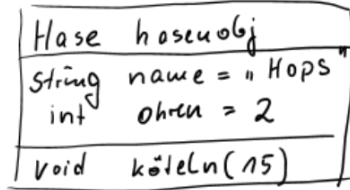 Hase hasenobj
String name = „Hops"
int ohren = 2
void köteln(15)